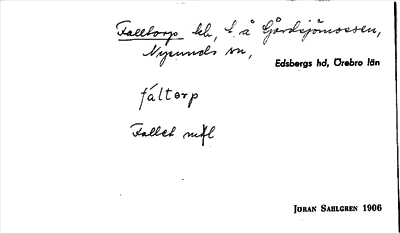 Falltorp kh, t. å Gårdsjömossen,
Nysunds sn,
Edsbergs hd, Örebro län
fáltorp
Fallet
JÖRAN SAHLGREN 1906